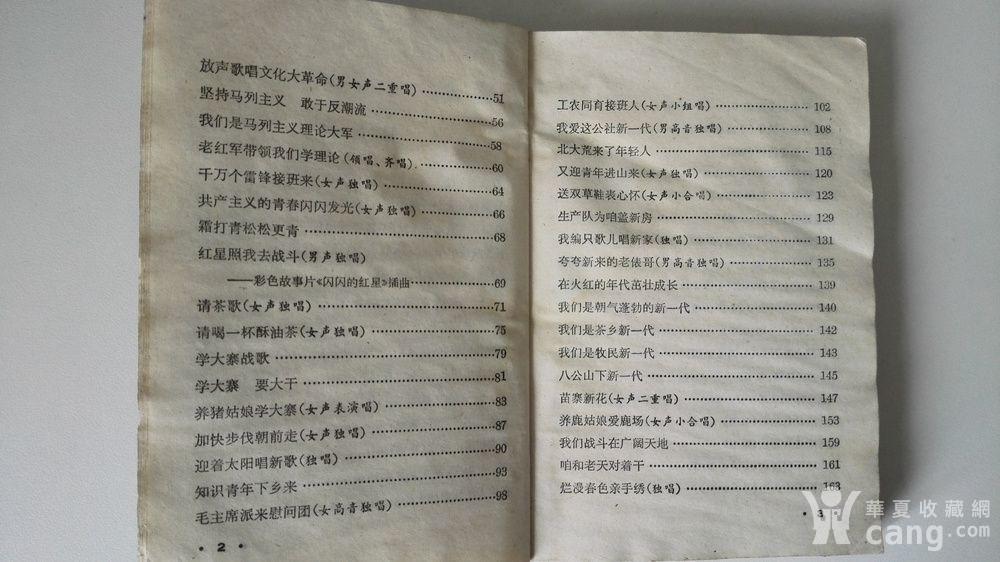 放声歌唱文化大革命(男女声二重唱)……51
坚持马列主义　敢于反潮流……56
我们是马列主义理论大军……58
老红军带领我们学理论(领唱、齐唱)……60
千万个雷锋接班来(女声独唱)……64
共产主义的青春闪闪发光(女声独唱)……66
霜打青松松更青……68
红星照我去战斗(男声独唱)
——彩色故事片《闪闪的红星》插曲……69
请茶歌(女声独唱)……71
请喝一杯酥油茶(女声独唱)……75
学大寨战歌……79
学大寨　要大干……81
养猪姑娘学大寨(女声表演唱)……83
加快步伐朝前走(女声独唱)……87
迎着太阳唱新歌(独唱)……90
知识青年下乡来……93
毛主席派来慰问团(女高音独唱)……98
• 2 •
工农同育接班人(女声小组唱)……102
我爱这公社新一代(男高音独唱)……108
北大荒来了年轻人……115
又迎青年进山来(女声独唱)……120
送双草鞋表心怀(女声小合唱)……123
生产队为咱盖新房……129
我编只歌儿唱新家(独唱)……131
夸夸新来的老俵哥(男高音独唱)……135
在火红的年代茁壮成长……139
我们是朝气蓬勃的新一代……140
我们是茶乡新一代……142
我们是牧民新一代……143
八公山下新一代……145
苗寨新花(女声二重唱)……147
养鹿姑娘爱鹿场(女声小合唱)……153
我们战斗在广阔天地……159
咱和老天对着干……161
烂漫春色亲手绣(独唱)……163
• 3 •
華夏收藏網
cang.com